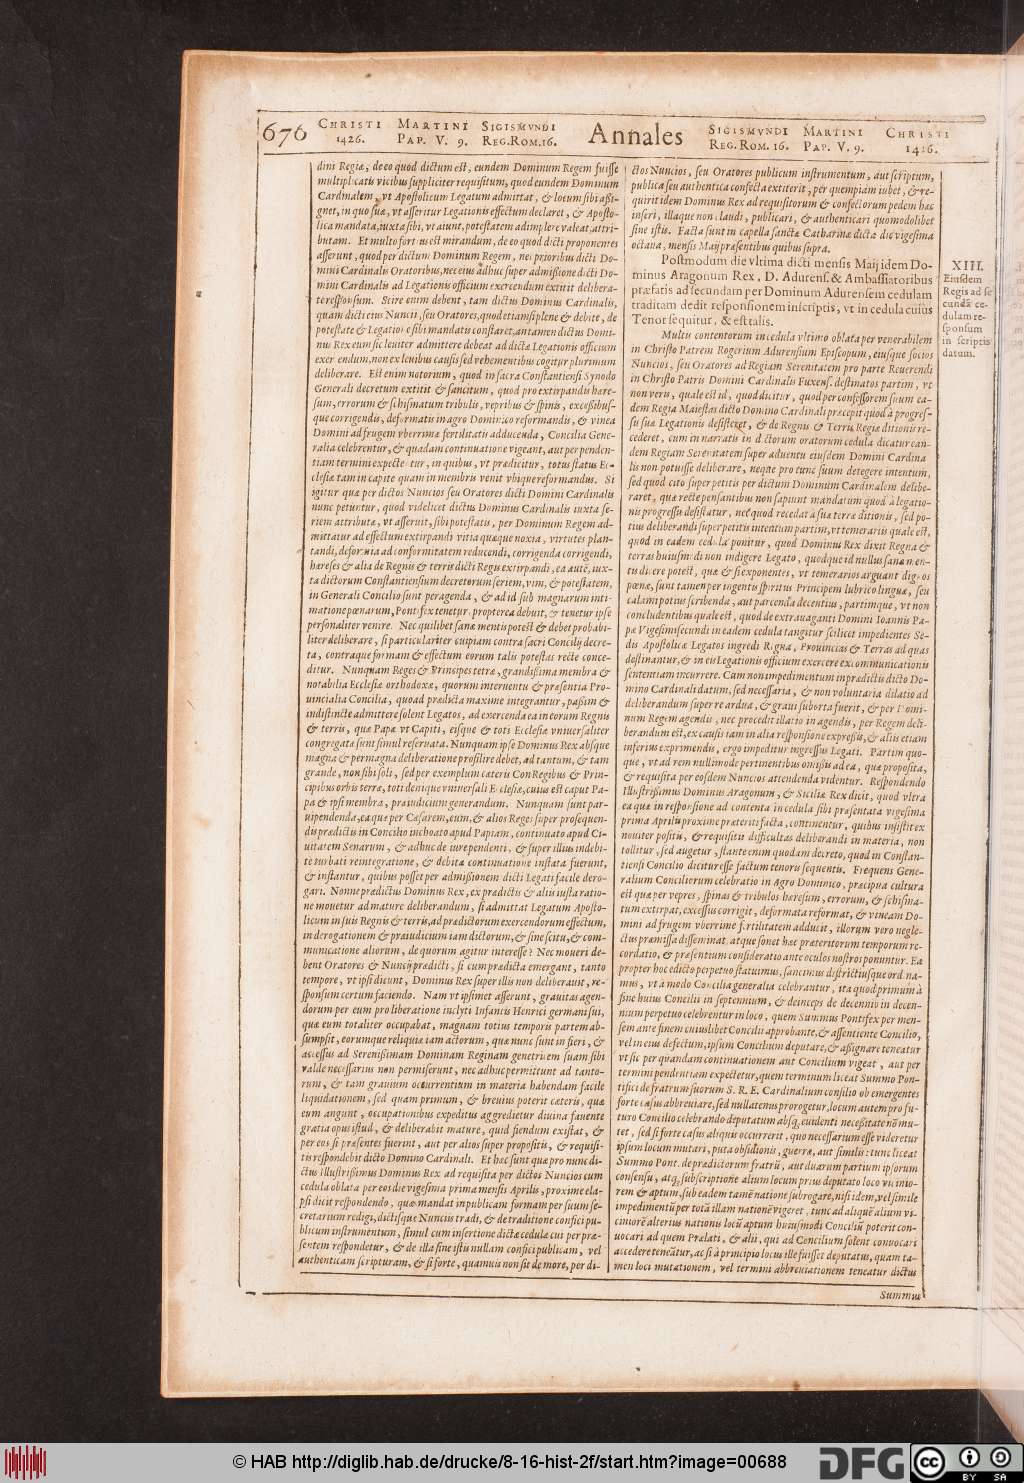 676 CHRISTI MARTINI SIGISMVNDI Annales SIGISMVNDI MARTINI CHRISTI
1426. PAP. V. 9. REG.ROM.16. REG.ROM.16. PAP. V. 9. 1426.
dini Regiæ, de eo quod dictum est, eundem Dominum Regem fuisse
multiplicatis vicibus suppliciter requisitum, quod eundem Dominum
Cardinalem, vt Apostolicum Legatum admittat, & locum sibi aßi-
gnet, in quo suæ, vt asseritur Legationis effectum declaret, & Aposto-
lica mandata, iuxta sibi, vt aiunt, potestatem adimplere valeat, attri-
butam. Et multo fortius est mirandum, de eo quod dicti proponentes
asserunt, quod per dictum Dominum Regem, nec prioribus dicti Do-
mini Cardinalis Oratoribus, nec eius adhuc super admißione dicti Do-
mini Cardinalis ad Legationis officium exercendum extitit delibera-
te responsum. Scire enim debent, tam dictus Dominus Cardinalis,
quam dicti eius Nuncii, seu Oratores, quod etiamsi plene & debite, de
potestate & Legatione sibi mandatis constaret, an tamen dictus Domi-
nus Rex eum sic leuiter admittere debeat ad dictæ Legationis officium
exercendum, non ex leuibus causis sed vehementibus cogitur plurimum
deliberare. Est enim notorium, quod in sacra Constantiensi Synodo
Generali decretum extitit & sancitum, quod pro extirpandis hære-
sum, errorum & schismatum tribulis, vepribus & spinis, excessibus-
que corrigendis, deformatis in agro Dominico reformandis, & vinea
Domini ad frugem vberrimæ fertilitatis adducenda, Concilia Gene-
ralia celebrentur, & quadam continuatione vigeant, aut per penden-
tiam termini expectentur, in quibus, vt prædicitur, totus status Ec-
clesiæ tam in capite quam in membris venit vbique reformandus. Si
igitur quæ per dictos Nuncios seu Oratores dicti Domini Cardinalis
nunc petuntur, quod videlicet dictus Dominus Cardinalis iuxta se-
riem attributæ, vt asseruit, sibi potestatis, per Dominum Regem ad-
mittatur ad effectum extirpandi vitia quæque noxia, virtutes plan-
tandi, deformia ad conformitatem reducendi, corrigenda corrigendi,
hæreses & alia de Regnis & terris dicti Regis extirpandi, ea autē, iux-
ta dictorum Constantiensium decretorum seriem, vim, & potestatem,
in Generali Concilio sunt peragenda, & ad id sub magnarum inti-
matione pœnarum, Pontifex tenetur, propterea debuit, & tenetur ipse
personaliter venire. Nec quilibet sanæ mentis potest & debet probabi-
liter deliberare, si particulariter cuipiam contra sacri Concilij decre-
ta, contraque formam & effectum eorum talis potestas recte conce-
ditur. Nunquam Reges & Principes tetræ, grandißima membra &
notabilia Ecclesiæ orthodoxæ, quorum interuentu & præsentia Pro-
uincialia Concilia, quoad prædicta maxime integrantur, paßim &
indistincte admittere solent Legatos, ad exercenda ea in eorum Regnis
& terris, quæ Papæ vt Capiti, eisque & toti Ecclesiæ vniuersaliter
congregatæ sunt simul reseruata. Nunquam ipse Dominus Rex absque
magna & permagna deliberatione prosilire debet, ad tantum, & tam
grande, non sibi soli, sed per exemplum cæteris ConRegibus & Prin-
cipibus orbis terræ, toti denique vniuersali Ecclesiæ, cuius est caput Pa-
pa & ipsi membra, præiudicium generandum. Nunquam sunt par-
uipendenda, ea quæ per Cæsarem, eum, & alios Reges super prosequen-
dis prædictis in Concilio inchoato apud Papiam, continuato apud Ci-
uitatem Senarum, & adhuc de iure pendenti, & super illius indebi-
te turbati reintegratione, & debita continuatione instata fuerunt,
& instantur, quibus posset per admißionem dicti Legati facile dero-
gari. Nonne prædictus Dominus Rex, ex prædictis & aliis iusta ratio-
ne mouetur ad mature deliberandum, si admittat Legatum Aposto-
licum in suis Regnis & terris, ad prædictorum exercendorum effectum,
in derogationem & præiudicium iam dictorum, & sine scitu, & com-
municatione aliorum, de quorum agitur interesse? Nec moueri de-
bent Oratores & Nuncij prædicti, si cum prædicta emergant, tanto
tempore, vt ipsi dicunt, Dominus Rex super illis non deliberauit, re-
sponsum certum faciendo. Nam vt ipsimet asserunt, grauitas agen-
dorum per eum pro liberatione inclyti Infantis Henrici germani sui,
quæ eum totaliter occupabat, magnam totius temporis partem ab-
sumpsit, eorumque reliquia iam actorum, quæ nunc sunt in fieri, &
accessus ad Serenißimam Dominam Reginam genetricem suam sibi
valde necessarius non permiserunt, nec adhuc permittunt ad tanto-
rum, & tam grauium occurrentium in materia habendam facile
liquidationem, sed quam primum, & breuius poterit cæteris, quæ
eum angunt, occupationibus expeditus aggredietur diuina fauente
gratia opus istud, & deliberabit mature, quid fiendum existat, &
per eos si præsentes fuerint, aut per alios super propositis, & requisi-
tis respondebit dicto Domino Cardinali. Et hæc sunt quæ pro nunc di-
ctus illustrißimus Dominus Rex ad requisita per dictos Nuncios cum
cedula oblata per eos die vigesima prima mensis Aprilis, proxime ela-
psi dicit respondendo, quæ mandat in publicam formam per suum se-
cretarium redigi, dictisque Nunciis tradi, & de traditione confici pu-
blicum instrumentum, simul cum insertione dictæ cedulæ cui per præ-
sentem respondetur, & de illa sine istis nullam confici publicam, vel
authenticam scripturam, & si forte, quamuis non sit de more, per di-
ctos Nuncios, seu Oratores publicum instrumentum, aut scriptum,
publica seu authentica confecta extiterit, per quempiam iubet, & re-
quirit idem Dominus Rex ad requisitorum & confectorum pedem hæc
inseri, illaque non claudi, publicari, & authenticari quomodolibet
sine istis. Facta sunt in capella sanctæ Catharinæ dicta die vigesima
octaua, mensis Maij præsentibus quibus supra.
Postmodum die vltima dicti mensis Maij idem Do-
minus Aragonum Rex, D. Adurens. & Ambassiatoribus
præfatis ad secundam per Dominum Adurensem cedulam
traditam dedit responsionem inscriptis, vt in cedula cuius
Tenor sequitur, & est talis.
XIII.
Eiusdem
Regis ad se
cundā ce-
dulam re-
sponsum
in scriptis
datum.
Multis contentorum in cedula vltimo oblata per venerabilem
in Christo Patrem Rogerium Adurensium Episcopum, eiusque socios
Nuncios, seu Oratores ad Regiam Serenitatem pro parte Reuerendi
in Christo Patris Domini Cardinalis Fuxens. destinatos partim, vt
non veris, quale est id, quod dicitur, quod per confessorem suum ea-
dem Regia Maiestas dicto Domino Cardinali præcepit quod à progres-
su suæ Legationis desisteret, & de Regnis & Terris Regiæ ditionis re-
cederet, cum in narratis in dictorum oratorum cedula dicatur ean-
dem Regiam Serenitatem super aduentu eiusdem Domini Cardina
lis non potuisse deliberare, neque pro tunc suum detegere intentum,
sed quod cito super petitis per dictum Dominum Cardinalem delibe-
raret, quæ recte pensantibus non sapiunt mandatum quod à legatio-
nis progressu desistatur, nec quod recedat à sua terræ ditionis, sed po-
tius deliberandi super petitis intentum partim, vt temerariis quale est,
quod in eadem cedula ponitur, quod Dominus Rex dixit Regna &
terras huiusmodi non indigere Legato, quod que id nullus sanæ men-
tis dicere potest, quæ & si exponentes, vt temerarios arguant dignos
pœnæ, sunt tamen per ingentis spiritus Principem lubrico linguæ, seu
calami potius scribendæ, aut parcenda decentius, partimque, vt non
concludentibus quale est, quod de extrauaganti Domini Ioannis Pa-
pæ Vigesimisecundi in eadem cedula tangitur scilicet impedientes Se-
dis Apostolicæ Legatos ingredi Regna, Prouincias & Terras ad quas
destinantur, & in eis Legationis officium exercere excommunicationis
sententiam incurrere. Cum non impedimentum in prædictis dicto Do-
mino Cardinali datum, sed necessaria, & non voluntaria dilatio ad
deliberandum super re ardua, & graui suborta fuerit, & per Domi-
num Regem agendis, nec procedit illatio in agendis, per Regem deli-
berandum est, ex causis tam in alia responsione expressis, & aliis etiam
inferius exprimendis, ergo impeditur ingressus Legati. Partim quo-
que, vt ad rem nullimode pertinentibus omißis ad ea, quæ proposita,
& requisita per eosdem Nuncios attendenda videntur. Respondendo
Illustrißimus Dominus Aragonum, & Siciliæ Rex dicit, quod vltra
ea quæ in responsione ad contenta in cedula sibi præsentata vigesima
prima Aprilis proxime præteriti facta, continentur, quibus insistit ex
nouiter positis, & requisitis difficultas deliberandi in materia, non
tollitur, sed augetur, stante enim quodam decreto, quod in Constan-
tiensi Concilio dicitur esse factum tenoris sequentis. Frequens Gene-
ralium Conciliorum celebratio in Agro Dominico, præcipua cultura
est quæ per vepres, spinas & tribulos hæresum, errorum, & schisma-
tum extirpat, excessus corrigit, deformata reformat, & vineam Do-
mini ad frugem vberrimæ fertilitatis adducit, illorum vero negle-
ctus præmissa disseminat, atque fonet hæc præteritorum temporum re-
cordatio, & præsentium consideratio ante oculos nostros ponuntur. Ea
propter hoc edicto perpetuo statuimus, sancimus destrictiusque ord na-
mus, vt à modo Concilia generalia celebrantur, ita quod primum à
fine huius Concilii in septennium, & deinceps de decennio in decen-
nium perpetuo celebrentur in loco, quem Summus Pontifex per men-
sem ante finem cuiuslibet Concilii approbante, & assentiente Concilio,
vel in eius defectum, ipsum Concilium deputare, & aßignare teneatur
vt sic per quandam continuationem aut Concilium vigeat, aut per
termini pendentiam expectetur, quem terminum liceat Summo Pon-
tifici de fratrum suorum S. R. E. Cardinalium consilio ob emergentes
forte casus abbreuiare, sed nullatenus prorogetur, locum autem pro fu-
turo Concilio celebrando deputatum absq; euidenti necessitate nō mu-
tet, sed si forte casus aliquis occurrerit, quo necessarium esse videretur
ipsum locum mutari, puta obsidionis, guerræ, aut similis: tunc liceat
Summo Pont. de prædictorum fratrū, aut duarum partium ipsorum
consensu, atq; subscriptione alium locum prius deputato loco vicinio-
rem & aptum, sub eadem tamē natione subrogare, nisi idem, vel simile
impedimentū per totā illam nationē vigeret, tunc ad aliquē alium vi-
ciniorē alterius nationis locū aptum huiusmodi Conciliū poterit con-
uocari ad quem Prælati, & alii, qui ad Concilium solent conuocari
accedere teneātur, ac si à principio locus ille fuisset deputatus, quam ta-
men loci mutationem, vel termini abbreuiationem teneatur dictus
Summus
© HAB http://diglib.hab.de/drucke/8-16-hist-2f/start.htm?image=00688
DFG
cc BY SA